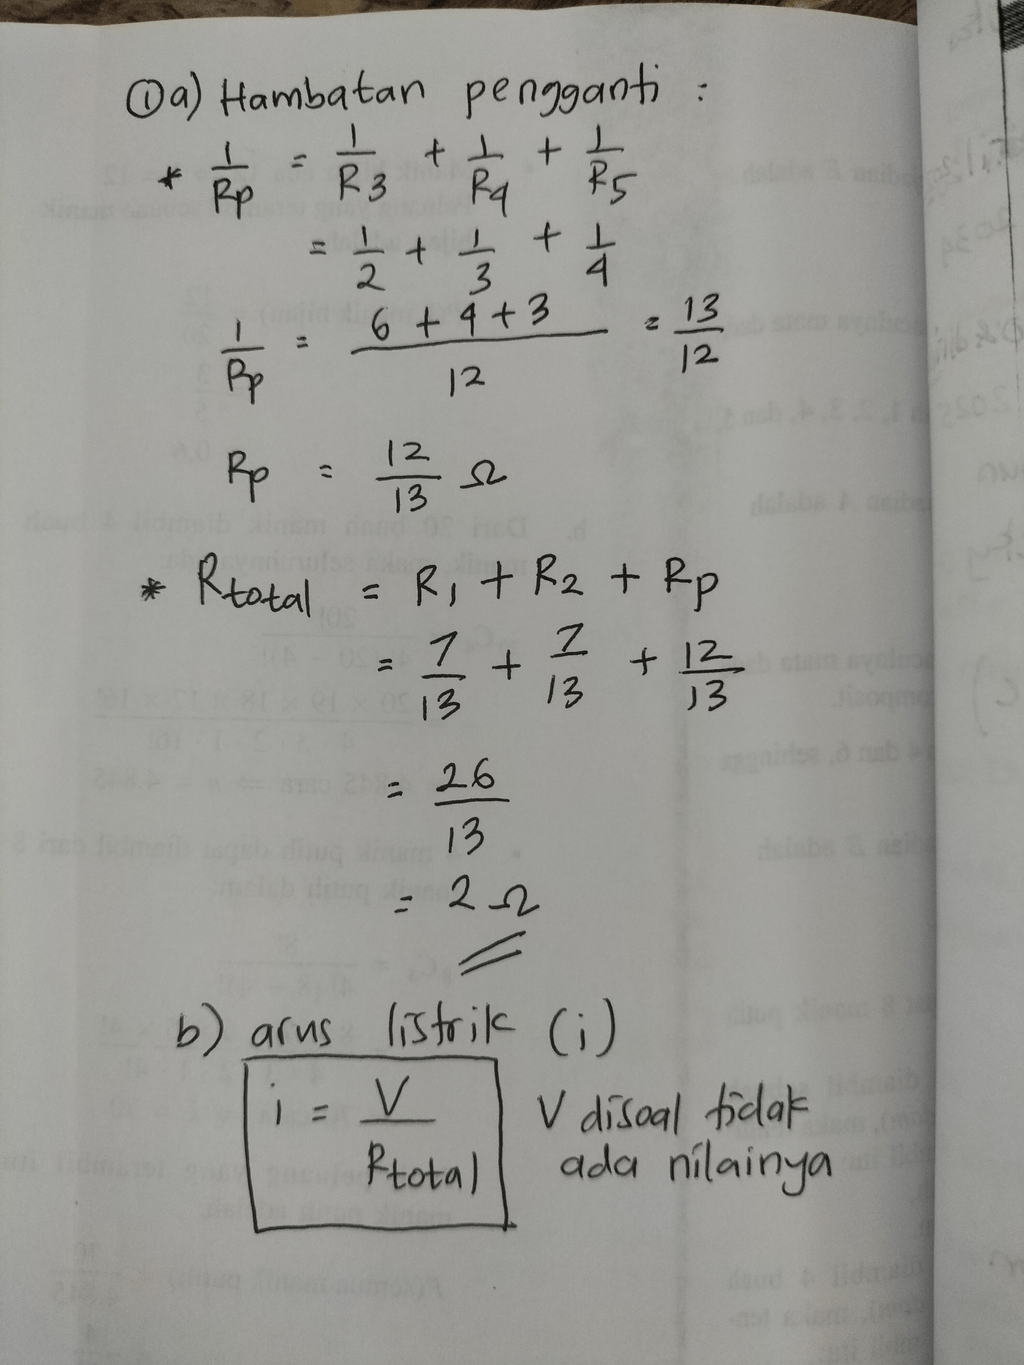 ① a) Hambatan pengganti :
* 1/Rp = 1/R3 + 1/R4 + 1/R5
= 1/2 + 1/3 + 1/4
1/Rp = (6 + 4 + 3)/12 = 13/12
Rp = 12/13 Ω
* Rtotal = R1 + R2 + Rp
= 7/13 + 7/13 + 12/13
= 26/13
= 2 Ω
b) arus listrik (i)
i = V/Rtotal
V disoal tidak
ada nilainya